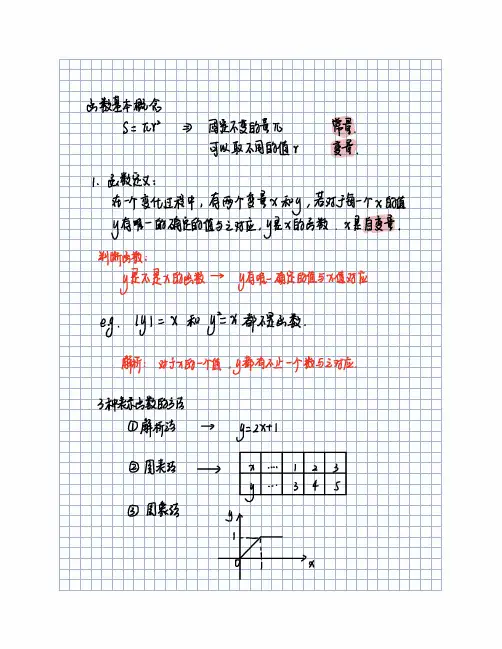 函数基本概念
S = πr² ⇒ 固定不变的量π 常量.
可以取不同的值 r 变量.
1. 函数定义:
在一个变化过程中, 有两个变量x和y, 若对于每一个x的值
y有唯一的确定的值与之对应, y是x的函数. x是自变量.
判断函数:
y是不是x的函数 → y有唯一确定的值与x值对应
e.g. |y| = x 和 y² = x 都不是函数.
解析: 对于x的一个值, y都有不止一个数与之对应.
3种表示函数的方法
① 解析法 → y=2x+1
② 图表法 → x … 1 2 3
y … 3 4 5
③ 图象法
y
1
0 1 x